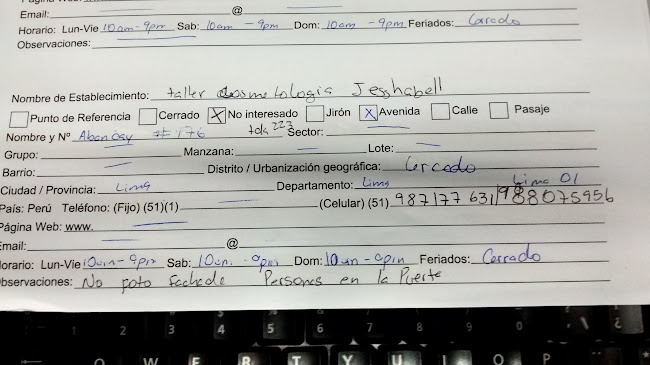 Email: @
Horario: Lun-Vie 10am-9pm Sab: 10am - 9pm Dom: 10am - 9pm Feriados: Cerrado
Observaciones:
Nombre de Establecimiento: taller Cosmetologia Jesshabell
Punto de Referencia Cerrado X No interesado Jirón X Avenida Calle Pasaje
Nombre y Nº Abancay #176 tda 223 Sector:
Grupo: Manzana: Lote:
Barrio: Distrito / Urbanización geográfica: Cercado
Ciudad / Provincia: Lima Departamento: Lima Lima 01
País: Perú Teléfono: (Fijo) (51)(1) (Celular) (51) 987177631/988075956
Página Web: www.
Email: @
Horario: Lun-Vie 10am-9pm Sab: 10am - 9pm Dom: 10am - 9pm Feriados: Cerrado
Observaciones: No foto fachada Personas en la Puerta
1 2 3 4 5 6 7 8 9 0 ? ¿
Q W E R T Y U I O P